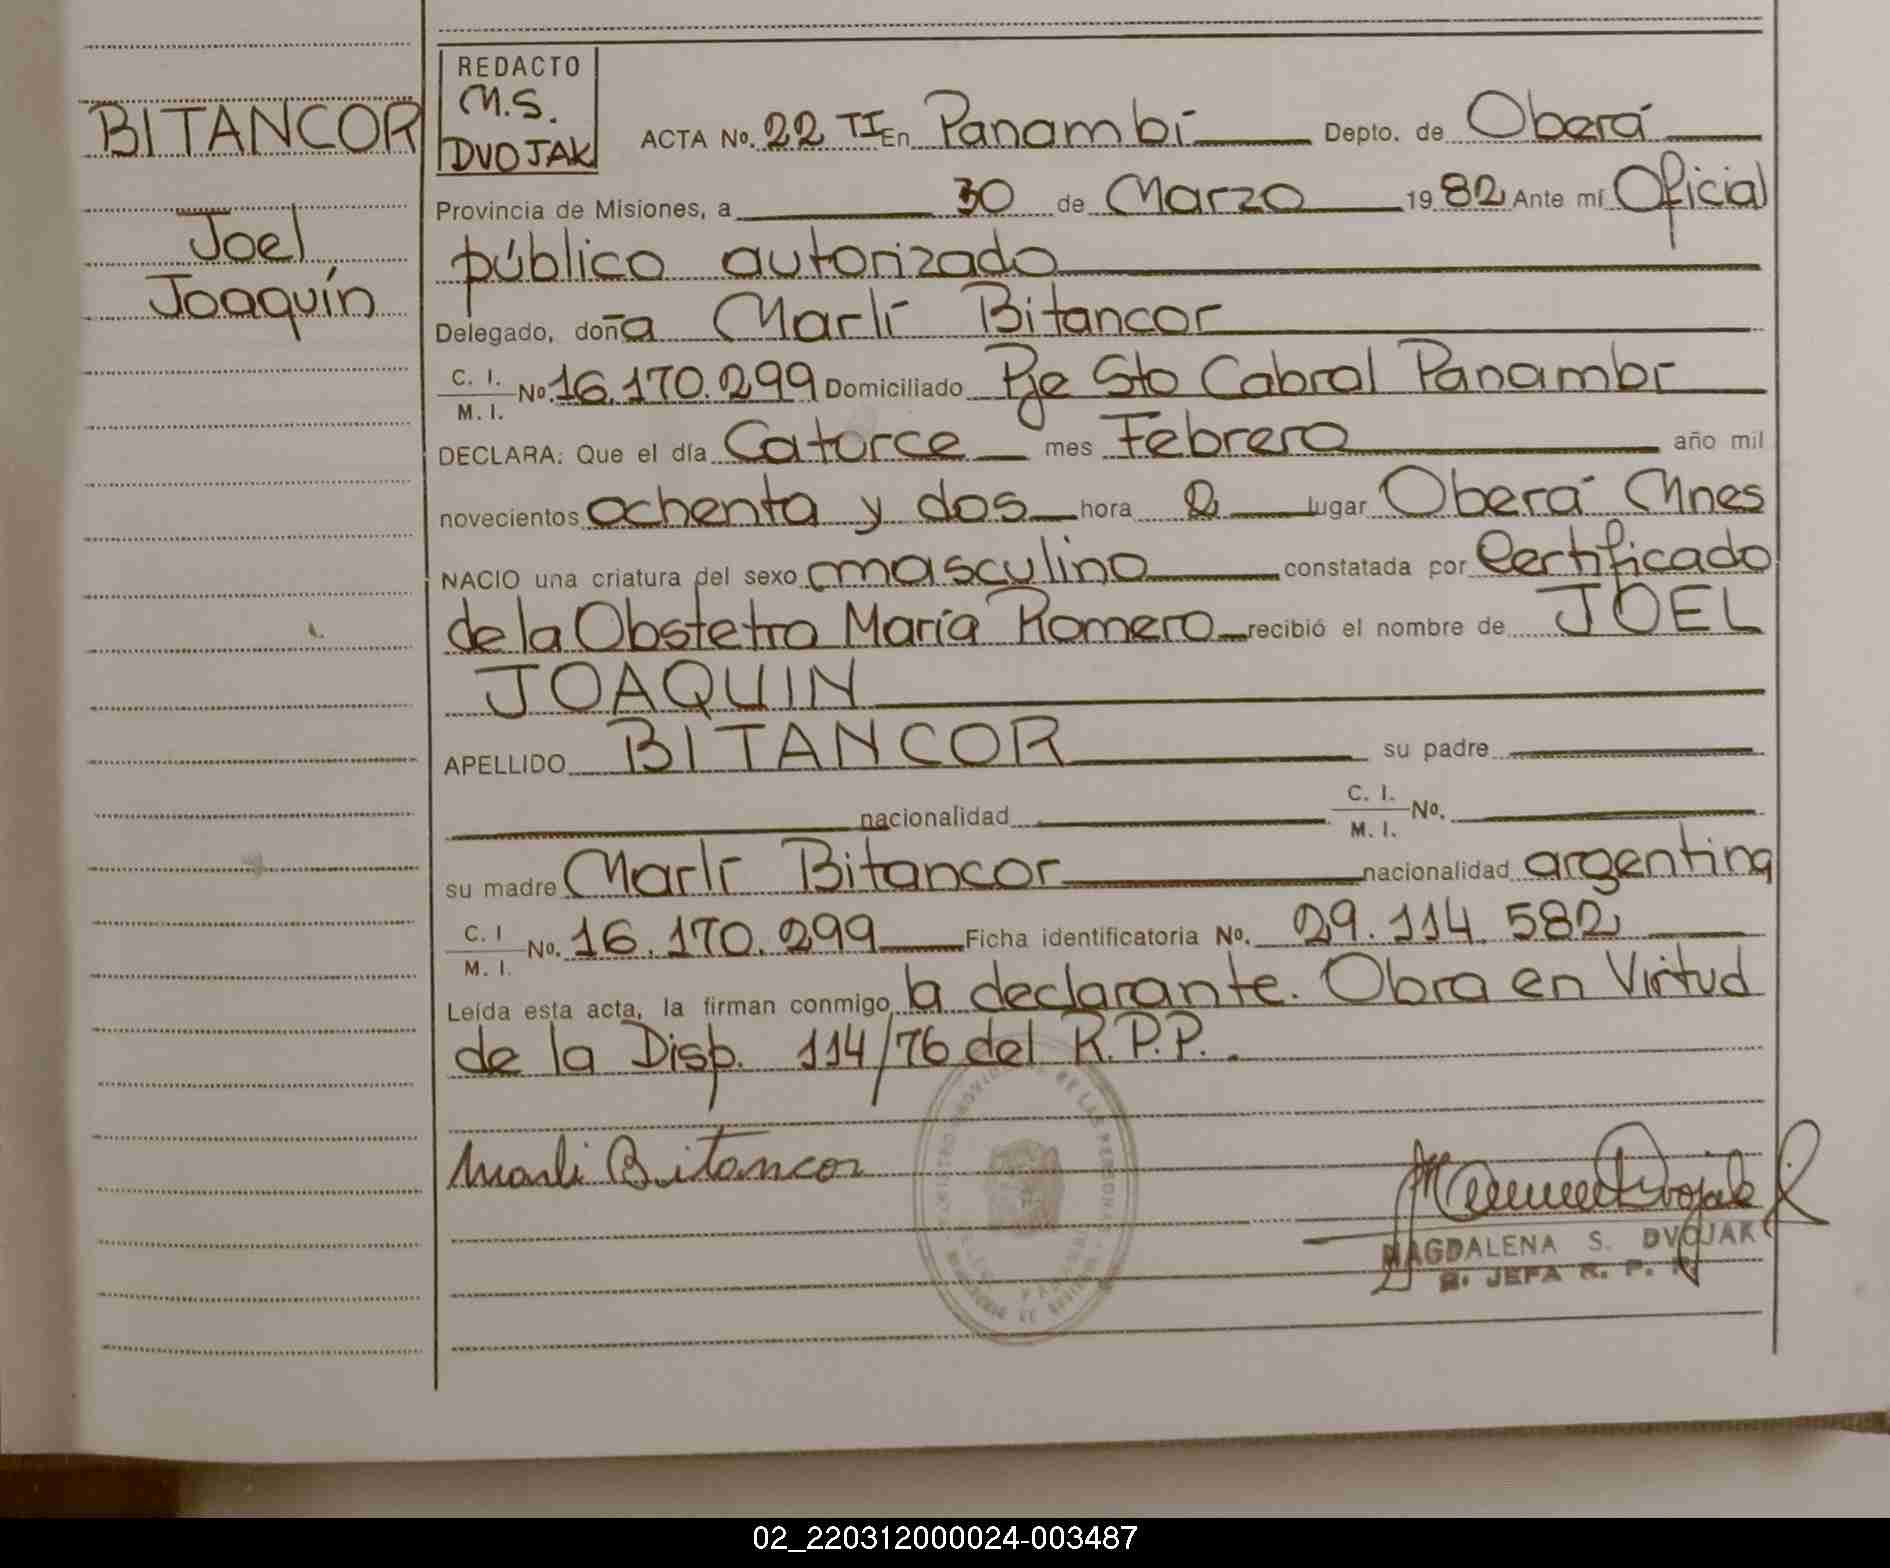 BITANCOR
Joel
Joaquín
REDACTO
M.S.
DVOJAK
ACTA No. 22 TI En Panambí Depto. de Oberá
Provincia de Misiones, a 30 de Marzo 1982 Ante mí Oficial
público autorizado
Delegado, doña Marlí Bitancor
C. I.
M. I. No. 16.170.299 Domiciliado Pje Sto Cabral Panambí
DECLARA: Que el día Catorce mes Febrero año mil
novecientos ochenta y dos hora 2 lugar Oberá Mnes
NACIO una criatura del sexo masculino constatada por Certificado
de la Obstetra María Romero recibió el nombre de JOEL
JOAQUIN
APELLIDO BITANCOR su padre
nacionalidad C. I.
M. I. No.
su madre Marlí Bitancor nacionalidad argentina
C. I
M. I. No. 16.170.299 Ficha identificatoria No. 29.114.582
Leída esta acta, la firman conmigo la declarante. Obra en Virtud
de la Disp. 114/76 del R.P.P..
Marli Bitancor
MAGDALENA S. DVOJAK
JEFA R. P. P.
02_220312000024-003487